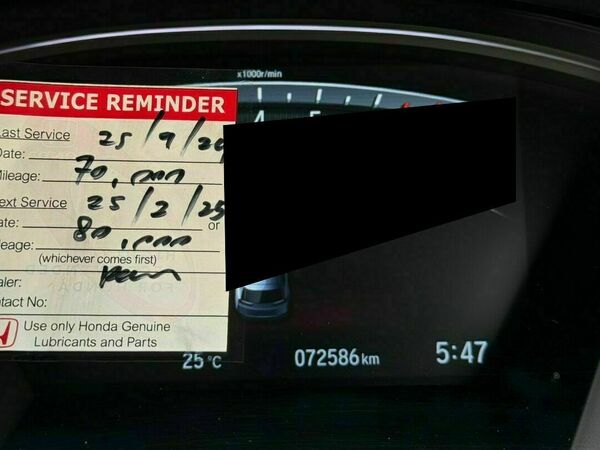 x1000r/min
4 5
SERVICE REMINDER
Last Service 25/9/24
Date:
Mileage: 70,000
Next Service 25/2/25
Date: or
Mileage: 80,000
(whichever comes first)
Dealer:
Contact No:
Use only Honda Genuine
Lubricants and Parts
25°C 072586km 5:47